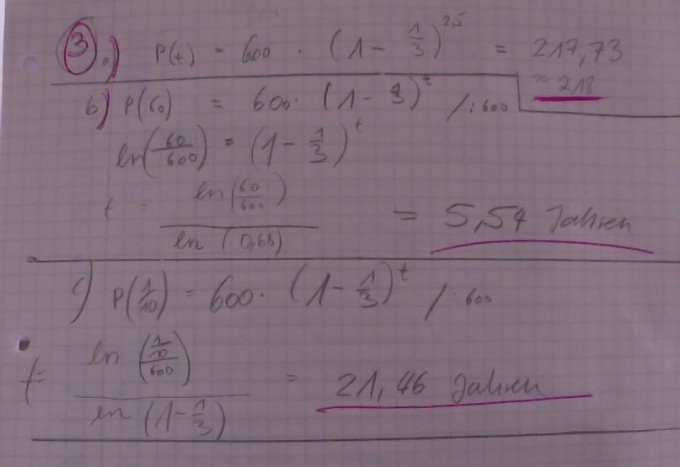 ③ a) P(t) = 600 · (1 - 1/3)^2,5 = 217,73
≈ 218
b) P(60) = 600 · (1 - 1/3)^t /:600
ln(60/600) = (1 - 1/3)^t
t = ln(60/600) / ln(0,66) = 5,54 Jahren
c) P(1/10) = 600 · (1 - 1/3)^t /:600
t = ln((1/10)/600) / ln(1 - 1/3) = 21,46 Jahren